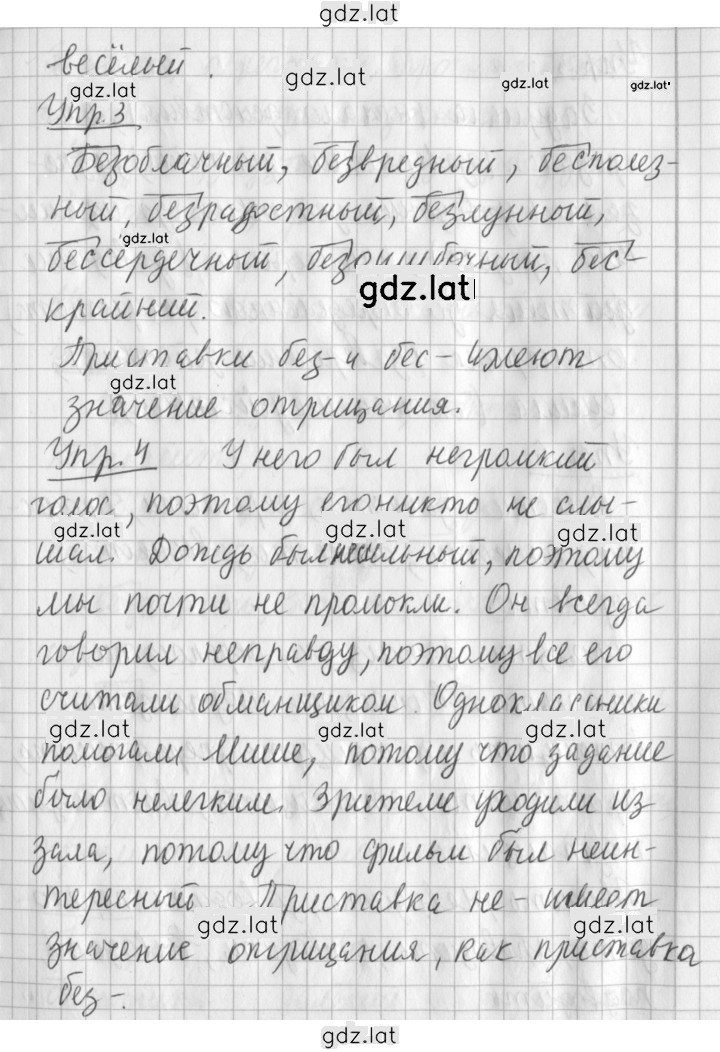 gdz.lat
весёлый.
gdz.lat
gdz.lat
gdz.lat
gdz.lat
Упр. 3
Безоблачный, безвредный, бесполез-
ный, безрадостный, безлунный,
gdz.lat
бессердечный, безошибочный, бес-
gdz.lat
крайний.
Приставки без- и бес- имеют
gdz.lat
значение отрицания.
Упр. 4 У него был негромкий
голос, поэтому его никто не слы-
gdz.lat
gdz.lat
gdz.lat
шал. Дождь был несильный, поэтому
мы почти не промокли. Он всегда
говорил неправду, поэтому все его
считали обманщиком. Одноклассники
gdz.lat
gdz.lat
gdz.lat
помогали Мише, потому что задание
было нелегким. Зрители уходили из
зала, потому что фильм был неин-
тересный Приставка не- имеет
gdz.lat
gdz.lat
значение отрицания, как приставка
без-.
gdz.lat